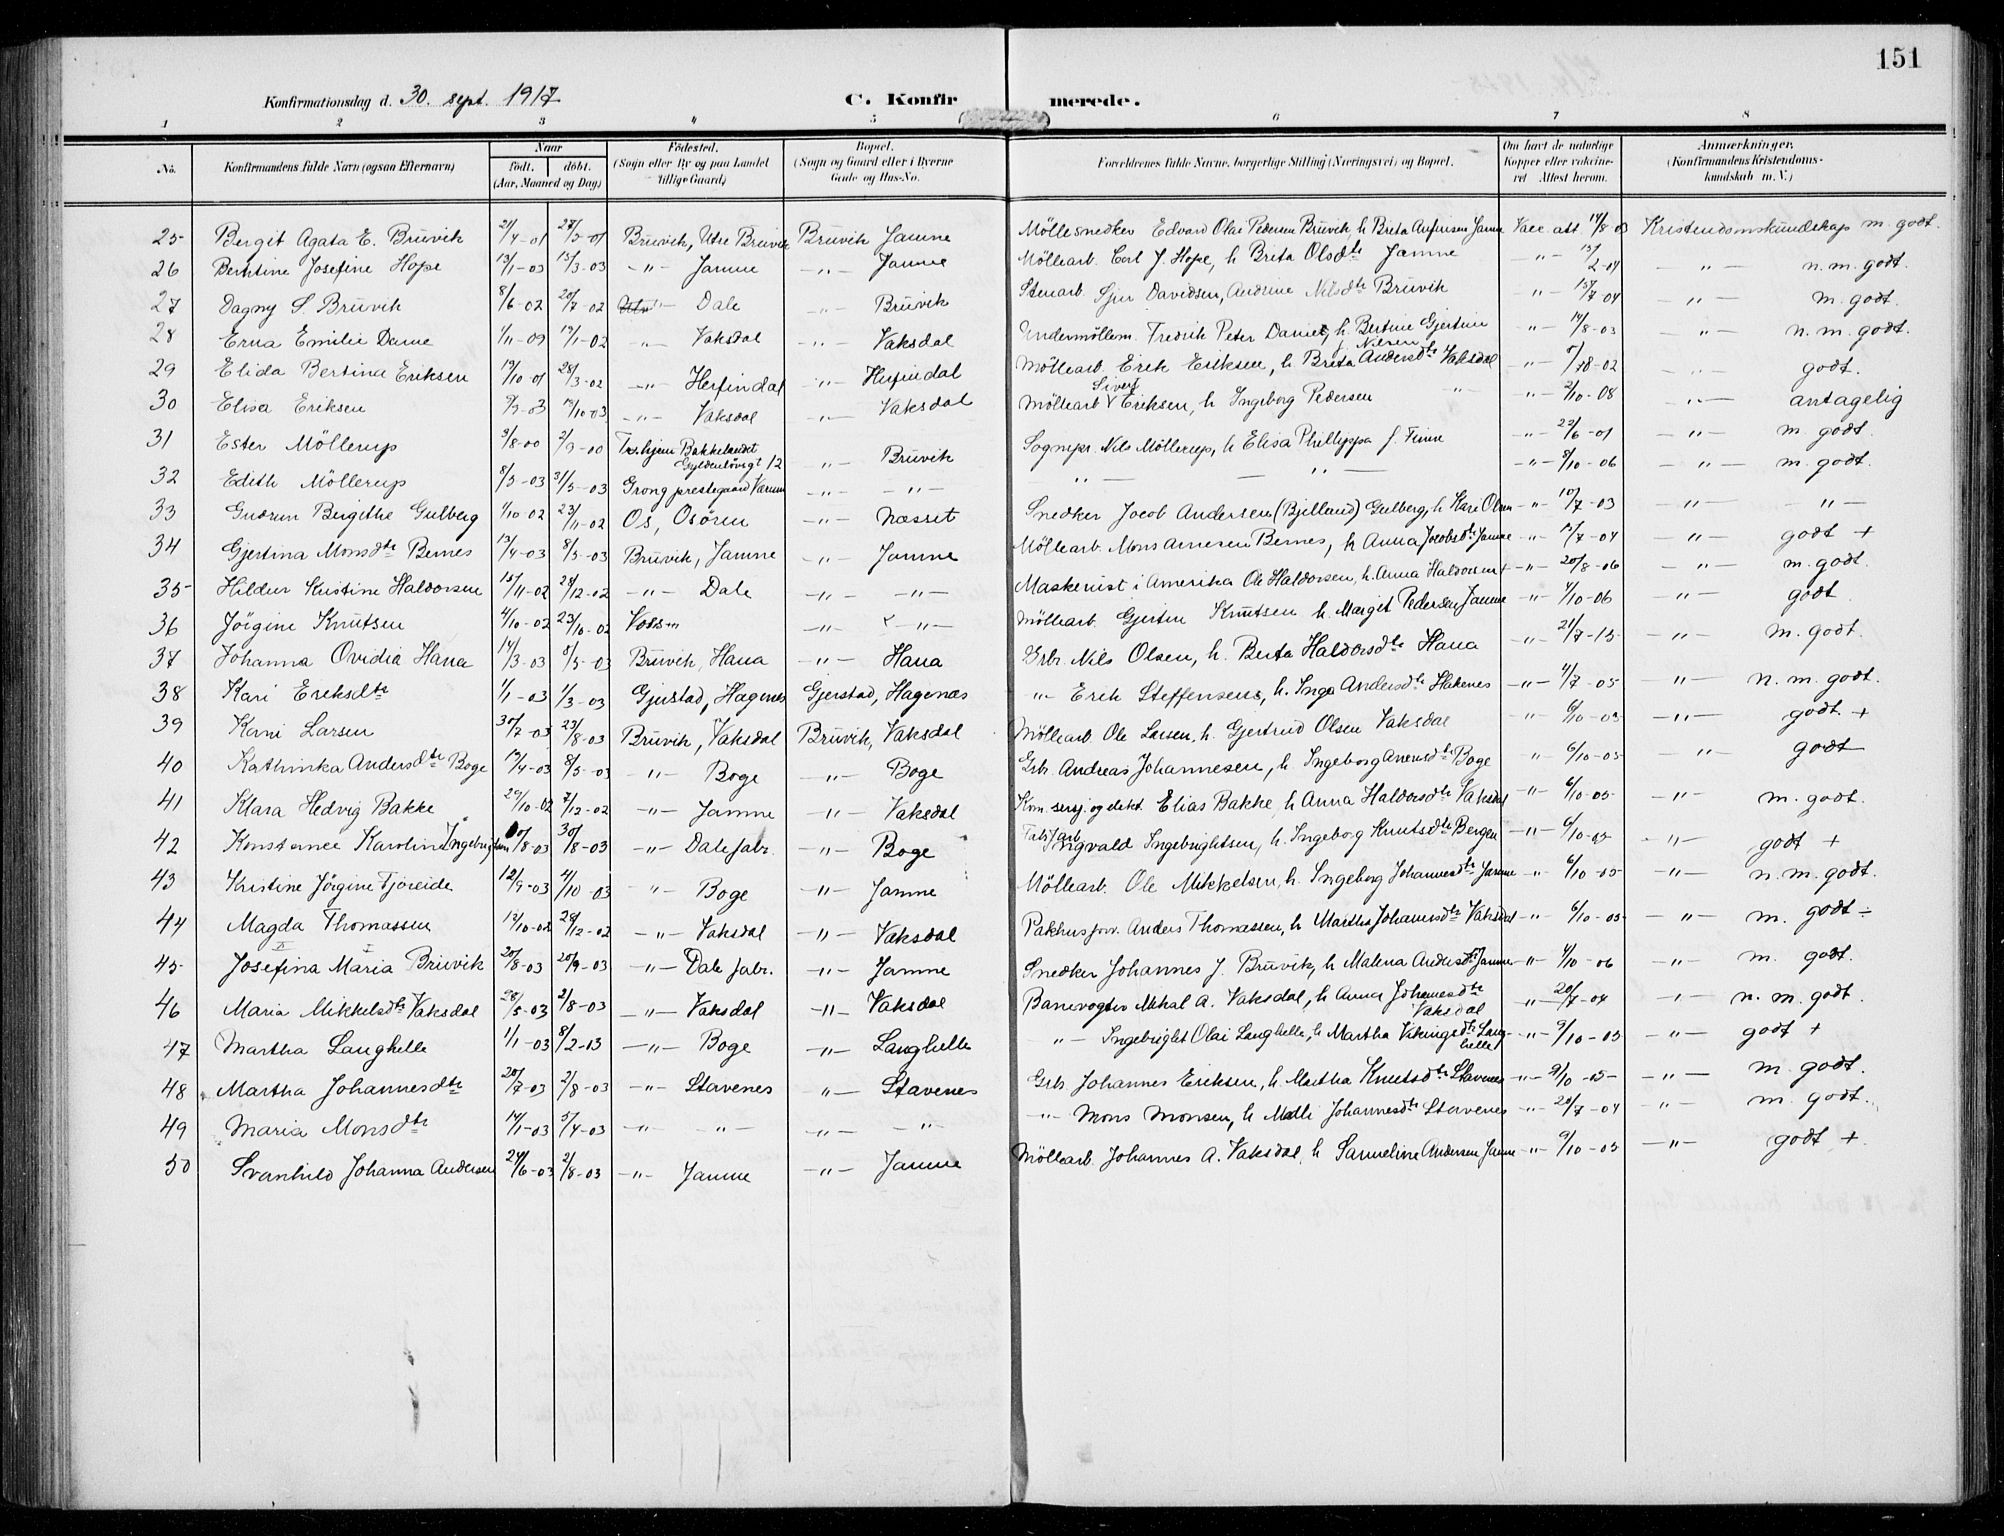 151
Konfirmationsdag d. 30. sept. 1917 C. Konfirmerede.
1 2 3 4 5 6 7 8
No. Konfirmandens fulde Navn (ogsaa Efternavn) Naar født. døbt. (Aar, Maaned og Dag) Fødested. (Sogn eller By og paa Landet tillige Gaard) Bopæl. (Sogn og Gaard eller i Byerne Gade og Hus-No. Forældrenes fulde Navne, borgerlige Stilling (Næringsvei) og Bopæl. Om havt de naturlige Kopper eller vakcineret Attest herom. Anmærkninger. (Konfirmandens Kristendomskundskab m. V.)
25 Bergit Agata E. Bruvik 21/4-01 27/5-01 Bruvik, Utre Bruvik Bruvik Jamne Möllesnedker Edvard Olai Pedersen Bruvik h Brita Anfinsen Jamne Vacc. att. 14/8 03 Kristendomskundskap m. godt.
26 Bertine Josefine Hope 13/1-03 15/3-03 -"- Jamne -"- Jamne Möllearb. Carl J. Hope, h Brita Olsdtr Jamne -"- 15/2-04 -"- n. m. godt.
27 Dagny S. Bruvik 8/6-02 20/7-02 Dale -"- Bruvik Stenarb. Sjur Davidsen, Andrine Nilsdtr Bruvik -"- 15/7-04 -"- m. godt.
28 Erna Emilie Danne 1/11-09 19/1-02 -"- Vaksdal -"- Vaksdal Undermöllem. Fredrik Peter Daniel, h. Bertine Gjertine f. Nilsen -"- 19/8-03 -"- n. m. godt.
29 Elida Bertina Eriksen 19/10-01 28/3-02 -"- Herfindal -"- Herfindal Möllearb. Erik Eriksen, h Brita Andersdtr Vaksdal -"- -02 -"- godt.
30 Elisa Eriksen 9/9-03 19/10-03 -"- Vaksdal -"- Vaksdal Möllearb Sivert Eriksen, h Ingeborg Pedersen " -"- 2/10-08 -"- antagelig
31 Ester Möllerup 3/8-00 2/9-00 Trhjem Bakkelandet Gyldenlövsgt 12 -"- Bruvik Sognepr. Nils Möllerup, h Elisa Phillippa f. Finne -"- 22/6-01 -"- m. godt.
32 Edith Möllerup 8/5-03 31/5-03 Grong prestegaard -"- -"- " — — " — -"- 8/10-06 -"- m. godt.
33 Gudrun Birgithe Gulberg 1/10-02 23/11-02 Os, Osören -"- Næsset Snedker Jacob Andersen (Bjilland) Gulberg, h Kari Olsen -"- 10/7-03 -"- "-
34 Gjertina Monsdtr Bernes 13/4-03 8/5-03 Bruvik, Jamne -"- Jamne Möllearb. Mons Arnesen Bernes, h Anna Jacobsdtr Jamne -"- 15/7-04 -"- godt +
35 Hildur Kristine Haldorsen 15/11-02 28/12-02 -"- Dale -"- -"- Maskenist i Amerika Ole Haldorsen, h. Anna Haldorsen -"- 20/8-06 -"- m. godt.
36 Jörgine Knutsen 4/10-02 23/10-02 Voss -"- -"- Möllearb. Gjertin Knutsen h. Margit Pedersen Jamne -"- 4/10-06 -"- godt
37 Johanna Ovidia Hana 14/3-03 8/5-03 Bruvik, Hana -"- Hana Grbr. Nils Olsen, h. Berta Haldorsdtr Hana -"- 21/7-15 -"- m. godt.
38 Kari Eriksdtr 1/1-03 1/3-03 Gjerstad, Hagenes Gjerstad, Hagenæs "- Erik Steffensens, h. Inga Andersdtr Hakenes -"- 4/7-05 -"- n. m. godt.
39 Karri Larsen 30/7-03 23/8-03 Bruvik, Vaksdal Bruvik, Vaksdal Möllearb. Ole Larsen, h. Gjertrud Olsen Vaksdal -"- 6/10-05 -"- godt. +
40 Kathinka Andersdtr Boge 19/4-03 8/5-03 -"- Boge -"- Boge Grb. Andreas Johannesen, h. Ingeborg Boge -"- 6/10-05 -"- godt
41 Klara Hedvig Bakke 29/10-02 7/12-02 -"- Jamne -"- Vaksdal Kom. sersj. og dekt. Elias Bakke, h Anna Haldorsdtr Vaksdal -"- 6/10-05 -"- m. godt.
42 Konstanee Karoline Ingebrigtsen /8-03 30/8-03 -"- Dale fabr. -"- Boge Fabr. arb. Sigvald Ingebrigtsen, h. Ingeborg Knutsdtr Bergen -"- 6/10-05 -"- godt +
43 Kristine Jörgine Fjoreide 12/9-03 4/10-03 -"- Boge -"- Jamne Möllearb. Ole Mikkelsen, h. Ingeborg Johannesdtr Jamne -"- 6/10-05 -"- n. m. godt.
44 Magda Thomassen 13/10-02 28/12-02 -"- Vaksdal -"- Vaksdal Pakhusforv. Anders Thomassen, h Martha Johannesdtr Vaksdal -"- 6/10-05 -"- m. godt ÷
45 Josefina Maria Bruvik 20/8-03 20/9-03 -"- Dale fabr. -"- Jamne Snedker Johannes J. Bruvik, h Malena Andersdtr Jamne -"- 4/10-06 -"- m. godt.
46 Maria Mikkelsdtr Vaksdal 28/5-03 2/8-03 -"- Vaksdal -"- Vaksdal Banevogter Mikal A. Vaksdal, h Anna Johannesdtr Vaksdal -"- 20/7-04 -"- n. m. godt.
47 Martha Langhelle 1/1-03 8/2-13 -"- Boge -"- Langhelle -"- Ingebrigt Olai Langhelle, h Martha Vikingsdtr Langhelle -"- 9/10-05 -"- godt +
48 Martha Johannesdtr 20/7-03 2/8-03 -"- Stavenes -"- Stavenes Grb. Johannes Eriksen, h. Martha Knutsdtr Stavenes -"- 9/10-05 -"- m. godt.
49 Maria Monsdtr 14/1-03 5/4-03 -"- -"- -"- -"- -"- Mons Monsen, h Malli Johannesdtr Stavenes -"- 20/7-04 -"- m. godt.
50 Svanhild Johanna Andersen 24/6-03 2/8-03 -"- Jamne -"- Jamne Möllearb. Johannes A. Vaksdal, h Sanneline Andersen Jamne -"- 9/10-05 -"- godt +